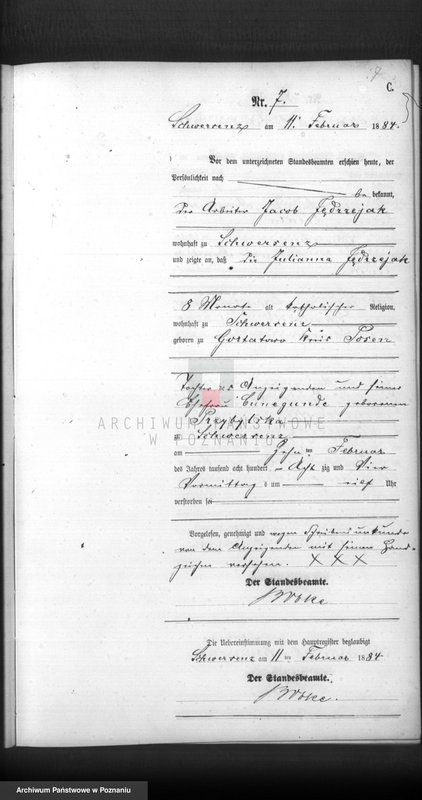 C.
Nr. 7.
Schwersenz am 11. Februar 1884.
Vor dem unterzeichneten Standesbeamten erschien heute, der
Persönlichkeit nach
be kannt,
der Arbeiter Jacob Jędrzejak
wohnhaft zu Schwersenz
und zeigte an, daß die Julianna Jędrzejak
8 Monate alt katholischer Religion,
wohnhaft zu Schwersenz
geboren zu Gortatowo Kreis Posen
Tochter des Anzeigenden und seiner
Ehefrau Cunegunde geborenen
ARCHIWUM PAŃSTWOWE
W POZNANIU
zu Schwersenz
am zehnten Februar
des Jahres tausend acht hundert Acht zig und Vier
Vormittags um elf Uhr
verstorben sei
Vorgelesen, genehmigt und wegen Schreibensunkunde
von dem Anzeigenden mit seinem Hand-
zeichen versehen. XXX
Der Standesbeamte.
Die Uebereinstimmung mit dem Hauptregister beglaubigt
Schwersenz am 11 ten Februar 1884
Der Standesbeamte.
Archiwum Państwowe w Poznaniu